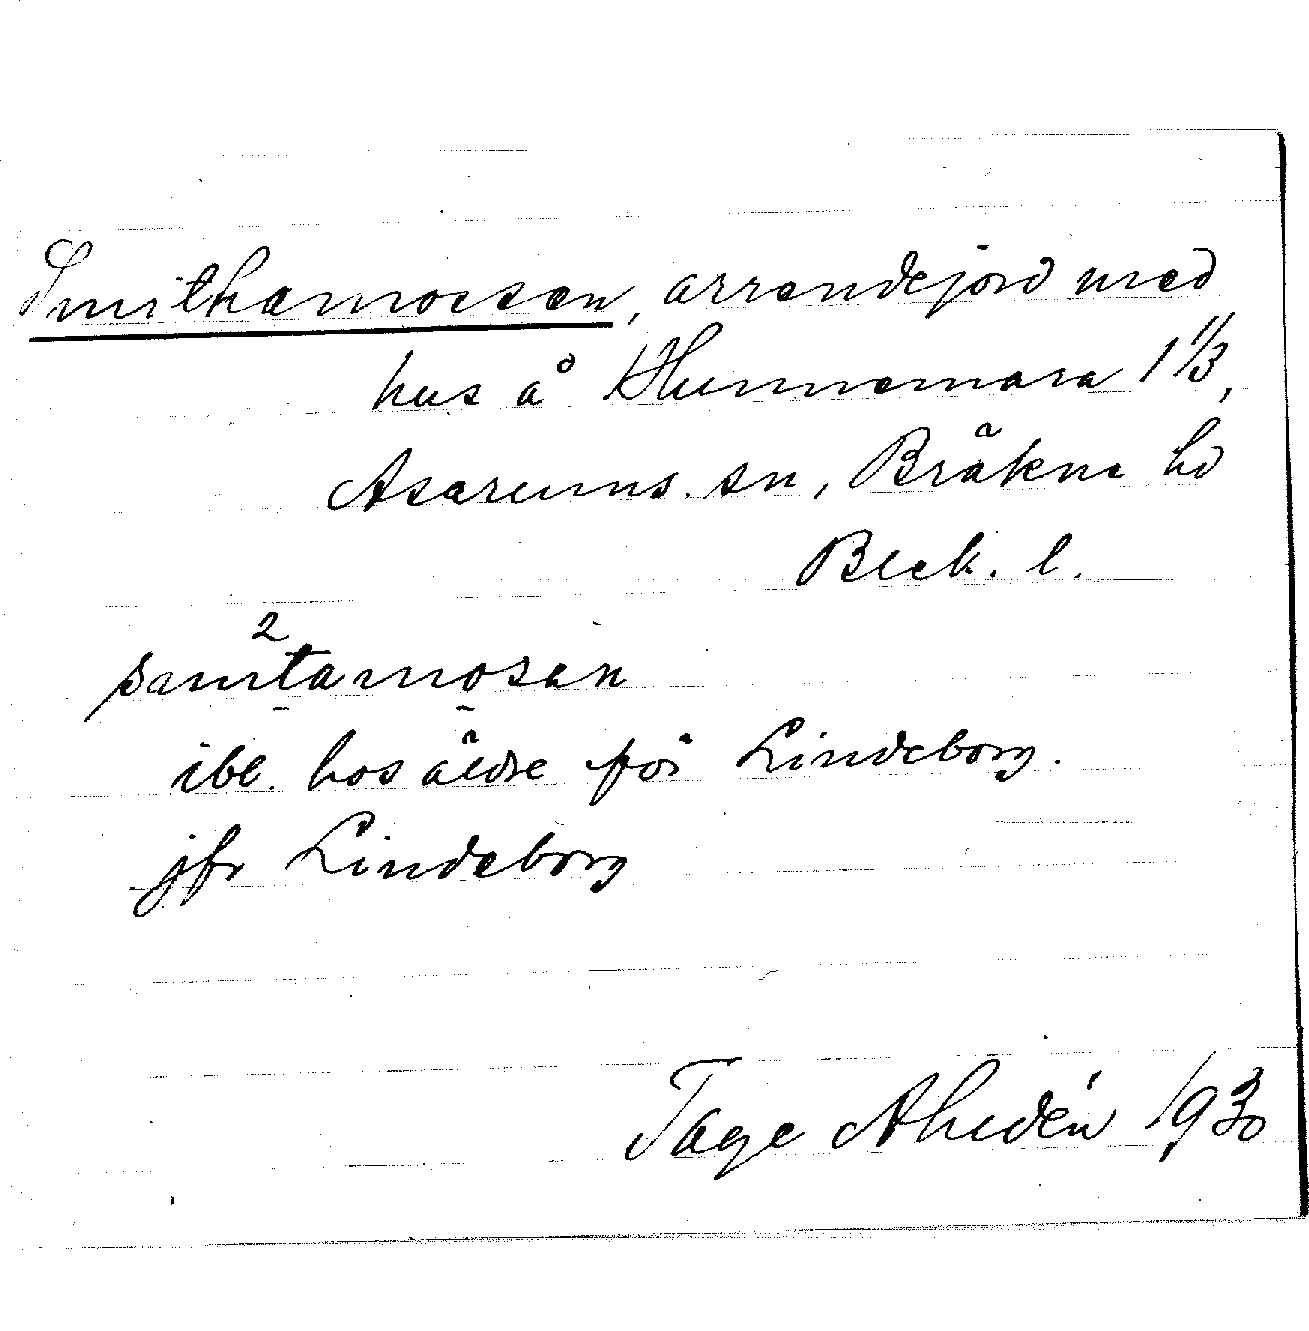 Smithamossen, arrendejord med
hus å Hunnemara 1 1/3,
Asarums sn, Bräkne hd
Bleck. l.
2
samtamosen
ibl. hos äldre för Lindeborg.
jfr Lindeborg
Tage Ahldén 1930